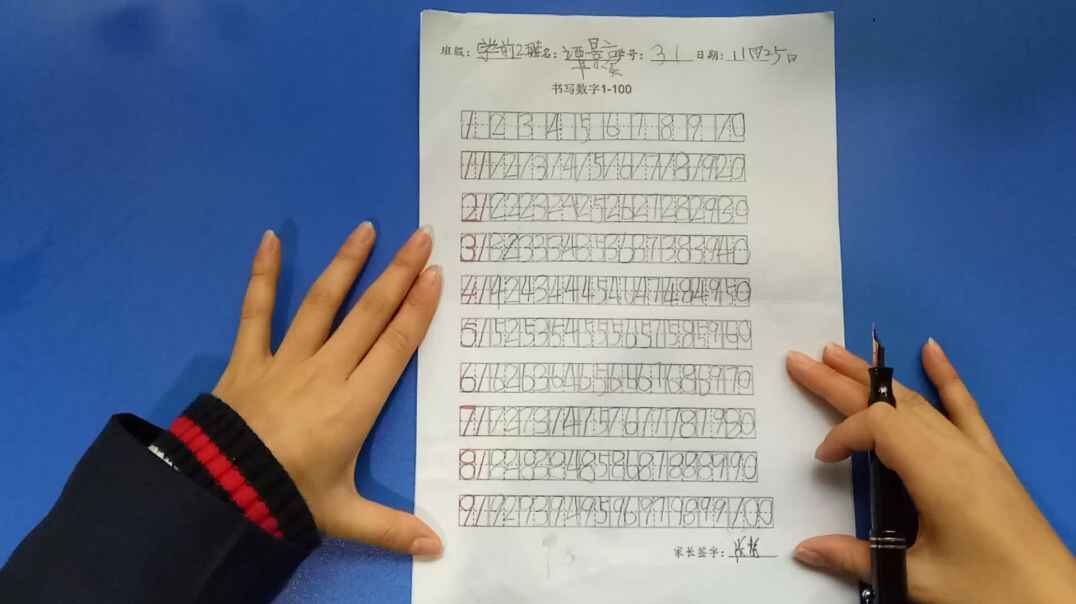 班级：学前2班 姓名： 学号：31 日期：11月25日
书写数字1-100
1 2 3 4 5 6 7 8 9 10
11 12 13 14 15 16 17 18 19 20
21 22 23 24 25 26 27 28 29 30
31 32 33 34 35 36 37 38 39 40
41 42 43 44 45 46 47 48 49 50
51 52 53 54 55 56 57 58 59 60
61 62 63 64 65 66 67 68 69 70
71 72 73 74 75 76 77 78 79 80
81 82 83 84 85 86 87 88 89 90
91 92 93 94 95 96 97 98 99 100
家长签字：